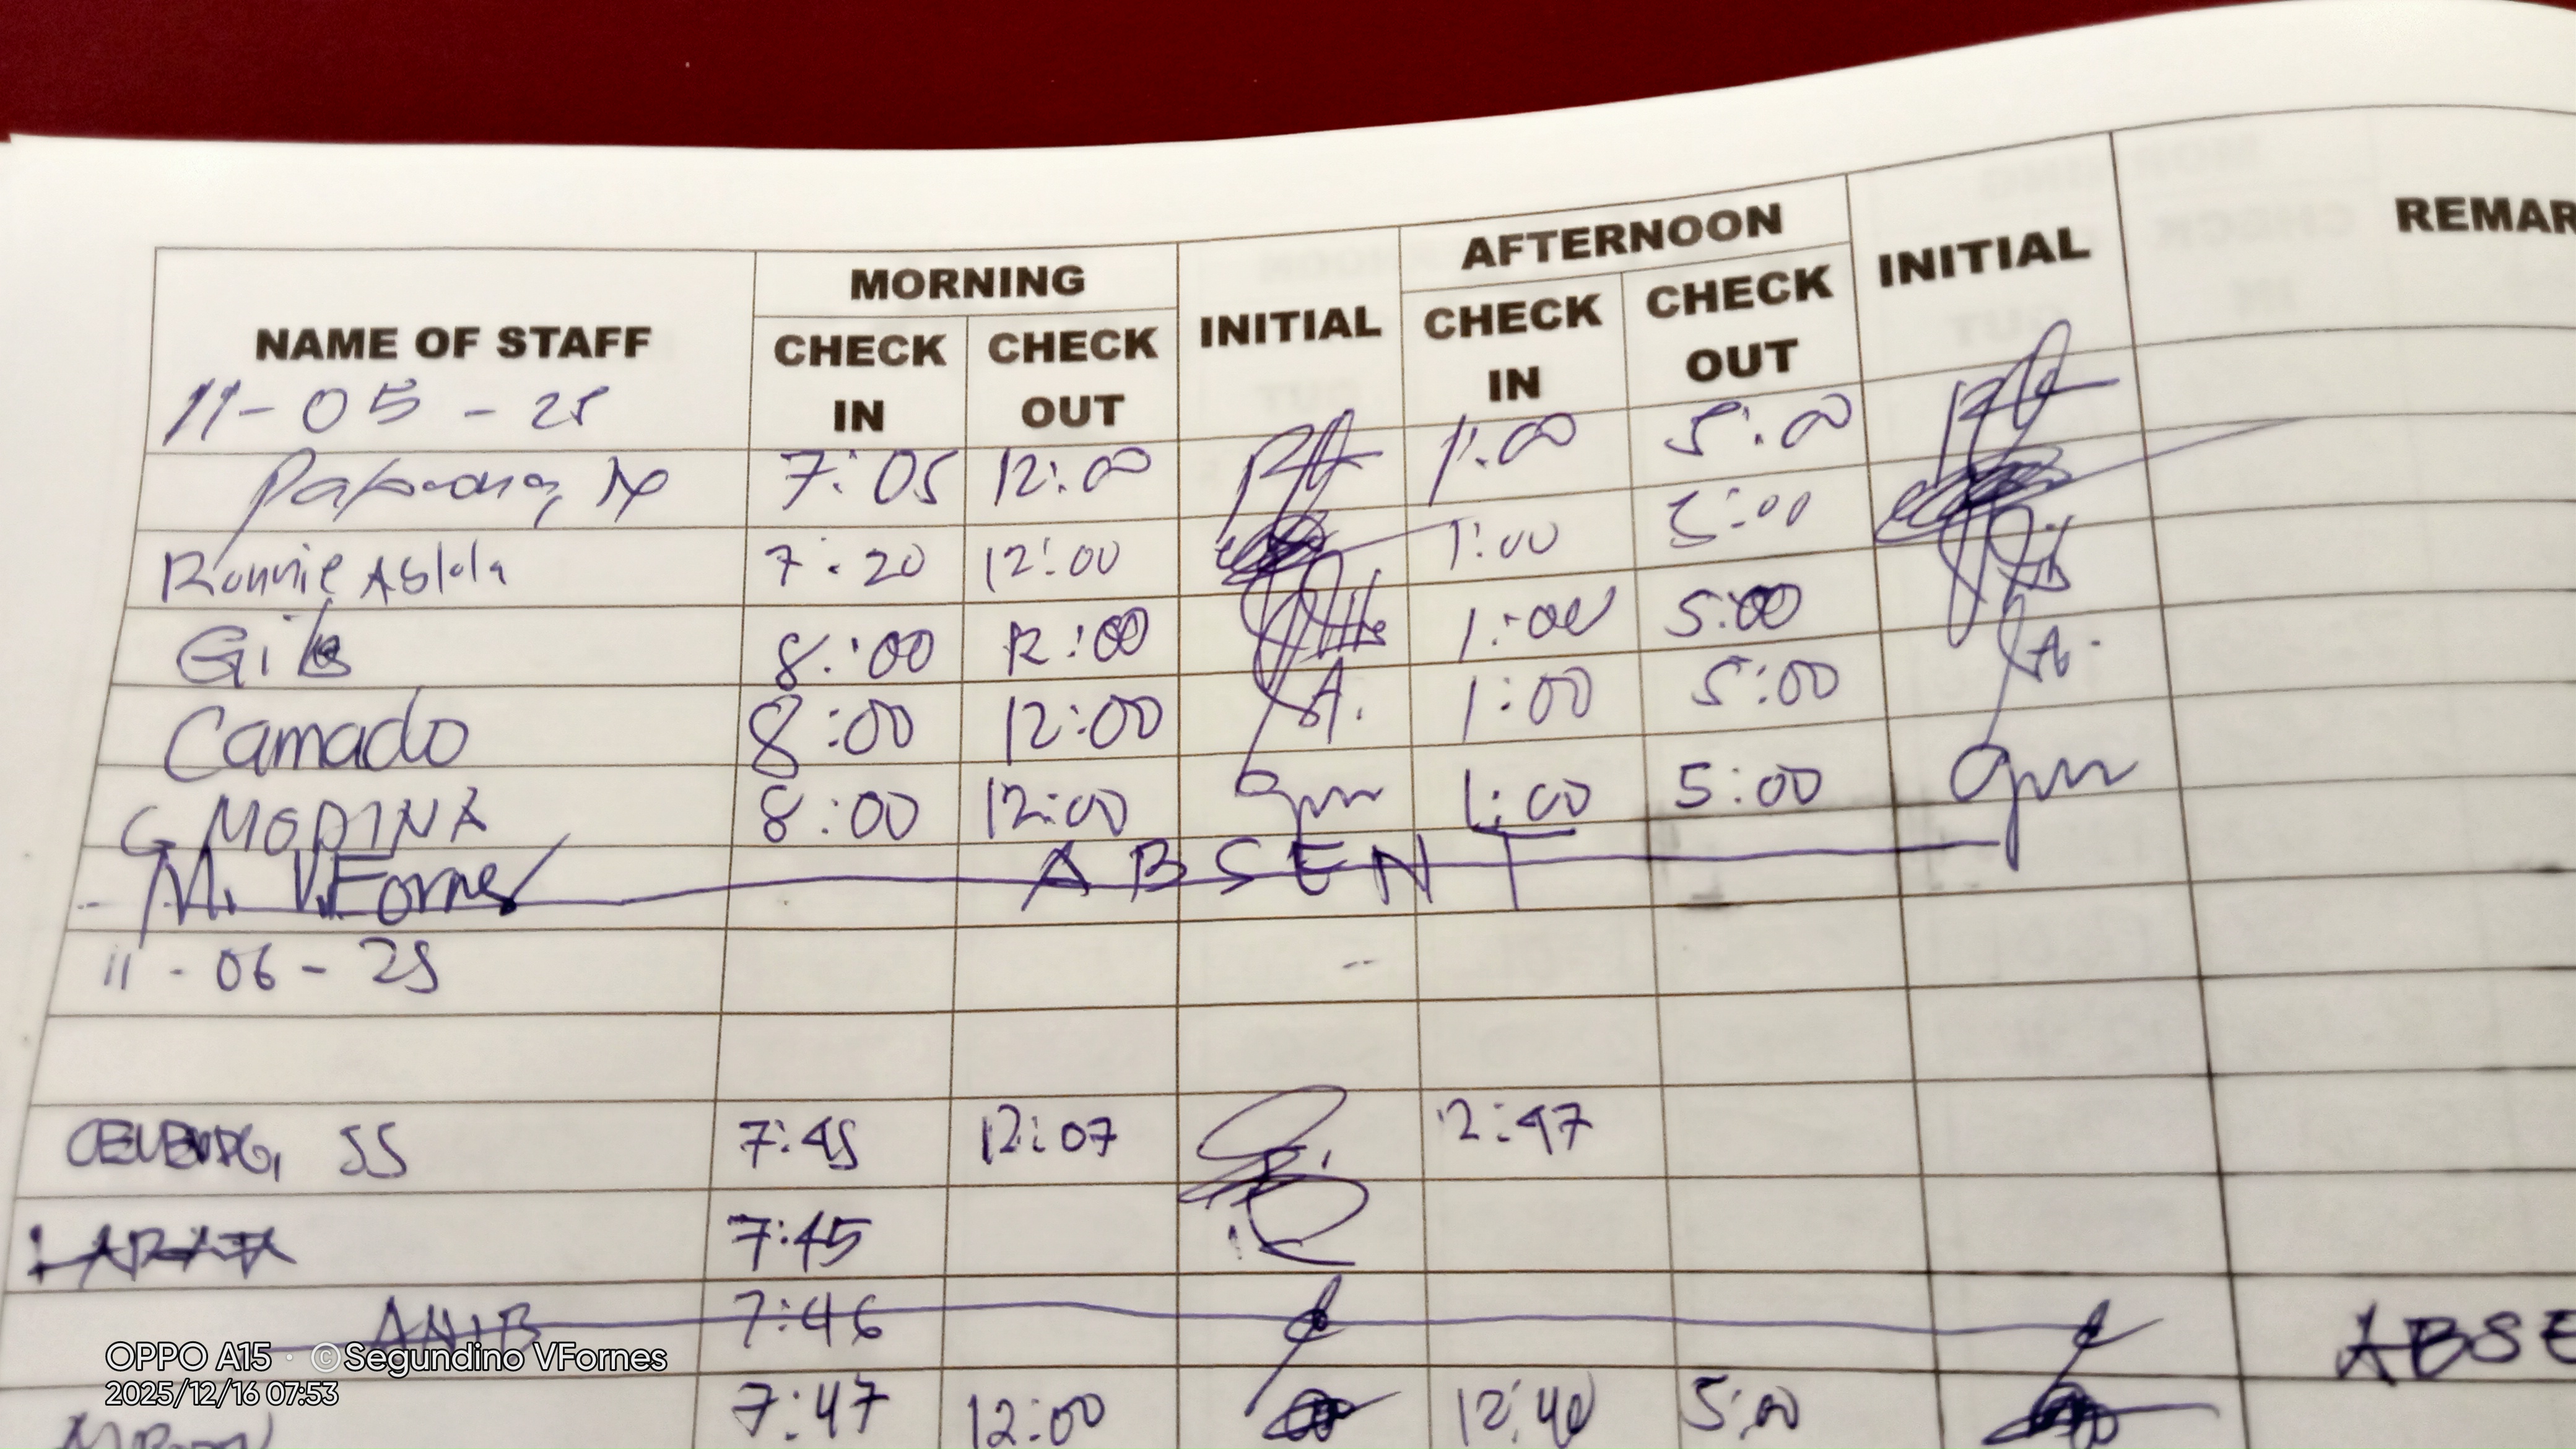 MORNING AFTERNOON
NAME OF STAFF CHECK IN CHECK OUT INITIAL CHECK IN CHECK OUT INITIAL REMAR
11-05-25
7:05 12:00 1:00 5:00
Ronnie 7:20 12:00 1:00 5:00
8:00 12:00 1:00 5:00
Camado 8:00 12:00 A. 1:00 5:00
G MODINA 8:00 12:00 gm 1:00 5:00 gm
M. V.Fornes ABSENT
11-06-25
SS 7:45 12:07 12:47
7:45
ANIB 7:46 ABSE
7:47 12:00 12:40 5:00
OPPO A15 · © Segundino VFornes
2025/12/16 07:53